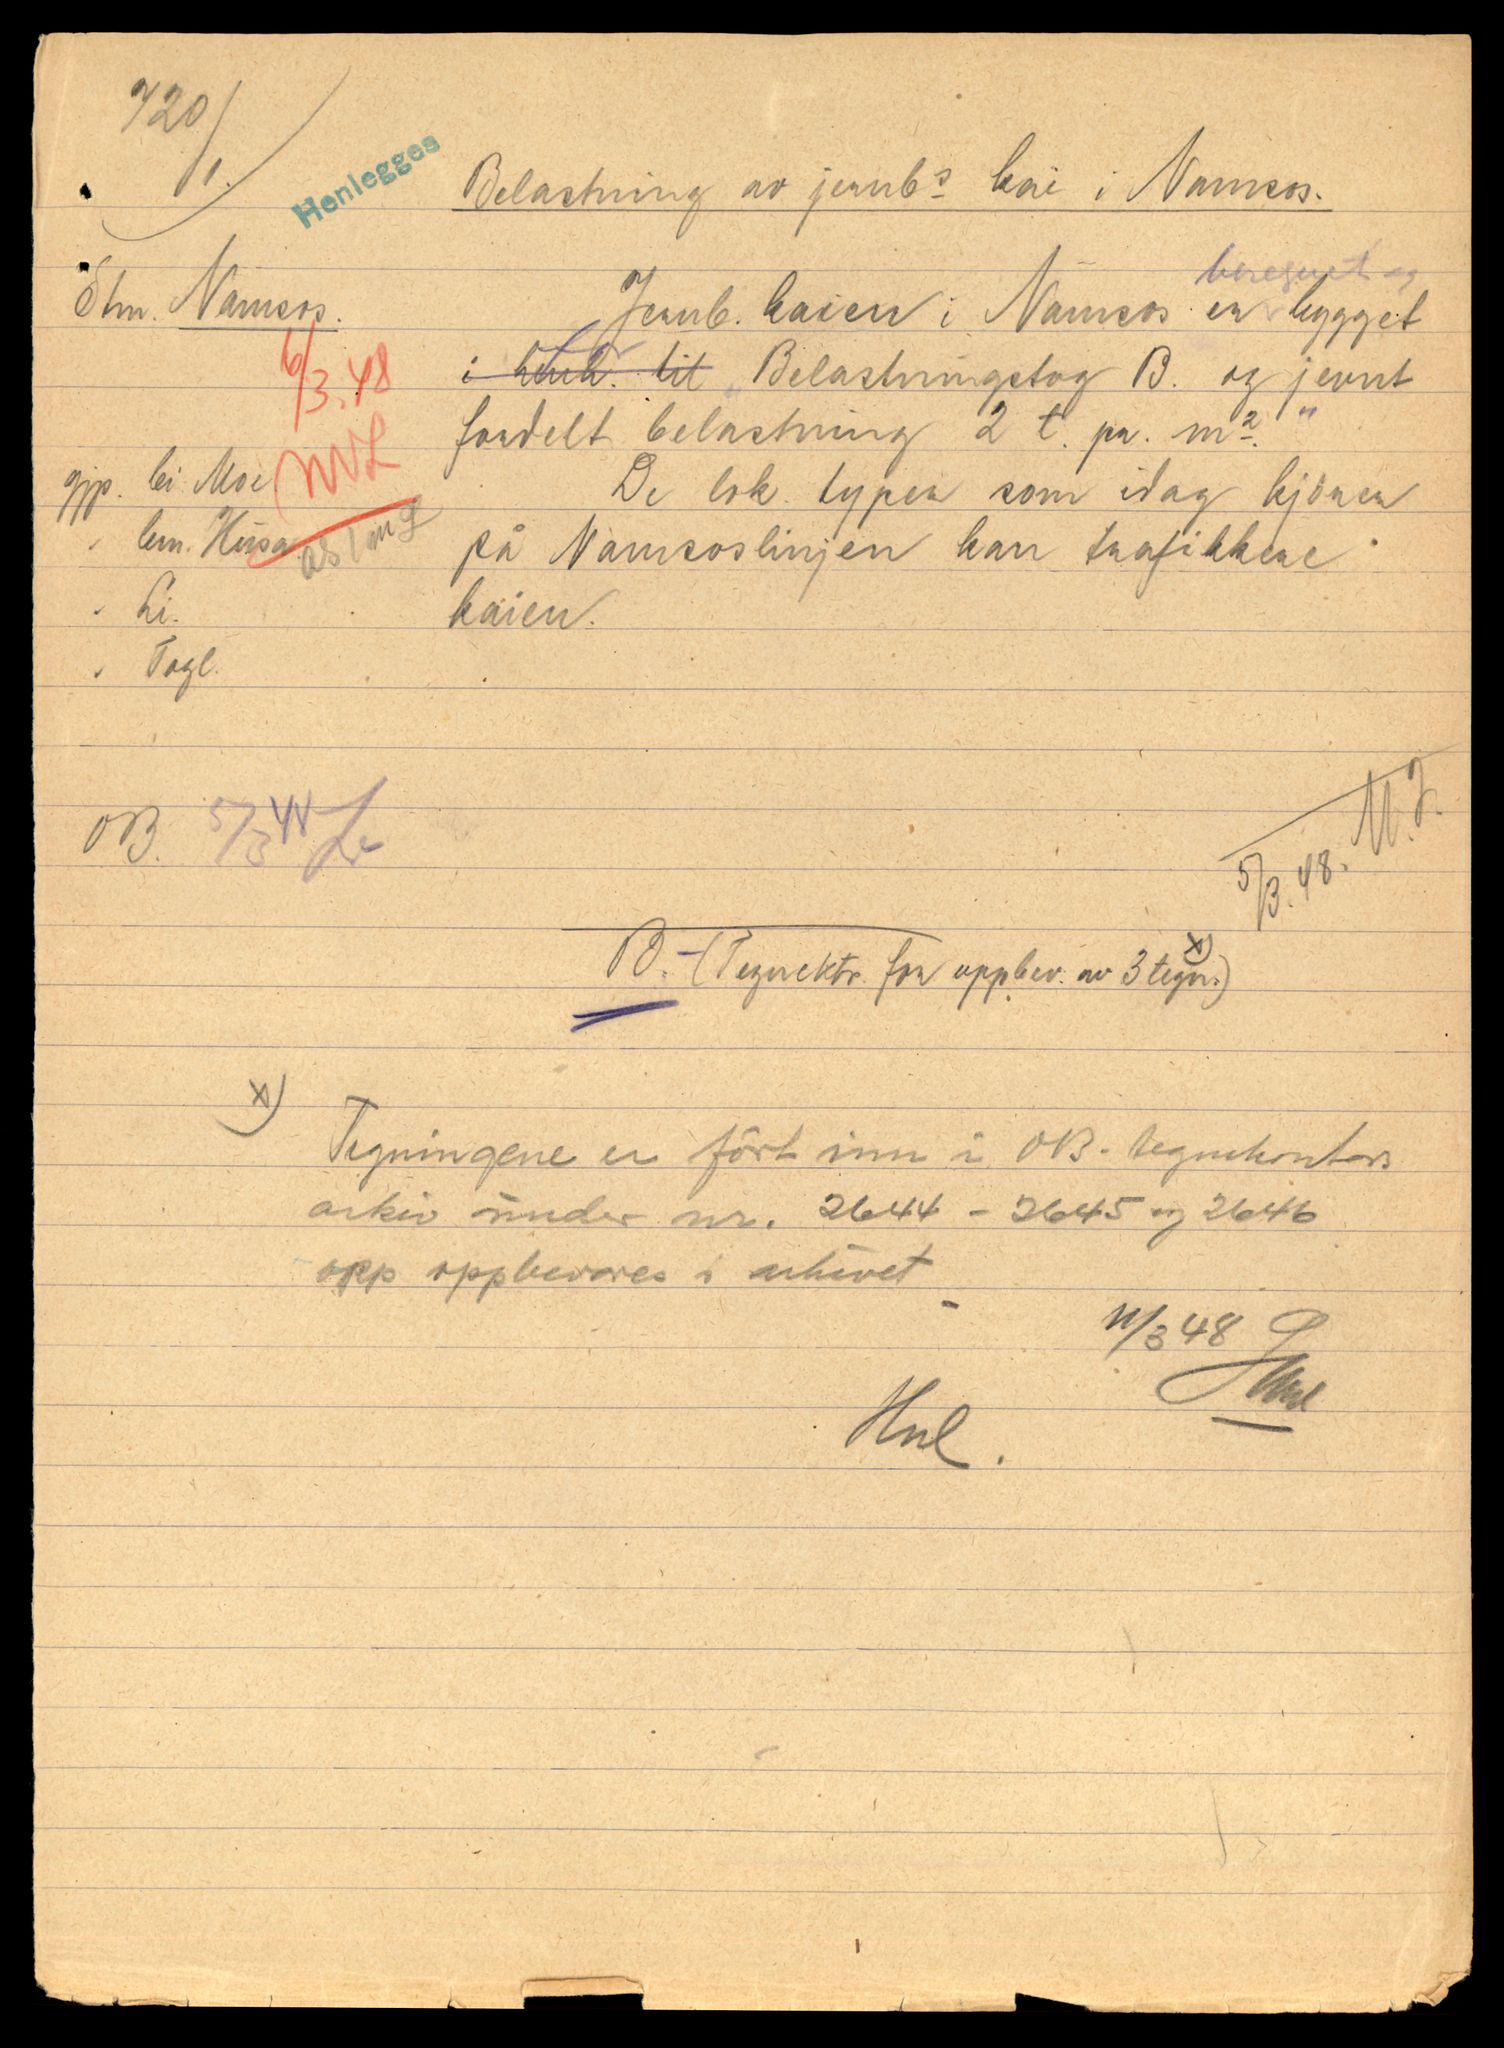 720/1.
Henlegges
Belastning av jernb.s kai i Namsos.
Stm. Namsos.
6/3.48
gjp. bi Moe
" bm. Husa
" Li.
" Togl.
beregnet og
Jernb. kaien i Namsos er bygget
i henh. til „Belastningstog B. og jevnt
fordelt belastning 2 t. pr. m². "
De lok. typer som idag kjører
på Namsoslinjen kan trafikkere
kaien.
OB. 5/3 48
5/3.48.
B. - (Tegnektr. for oppbev. av 3 tegn.) x)
x) Tegningene er ført inn i OB. tegnekontors
arkiv under nr. 2644 - 2645 og 2646
opp oppbevares i arkivet
11/3 48